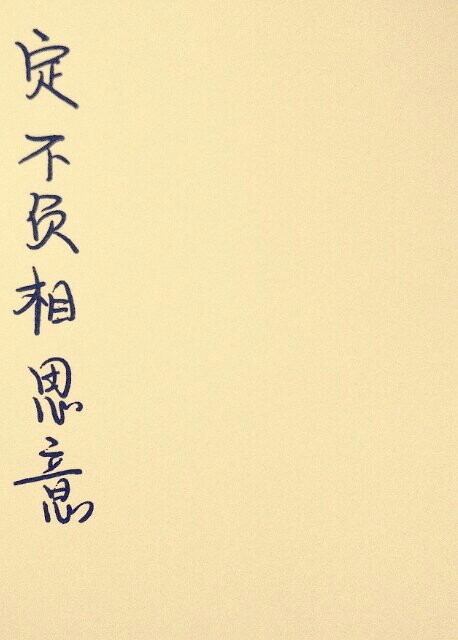 定不负相思意